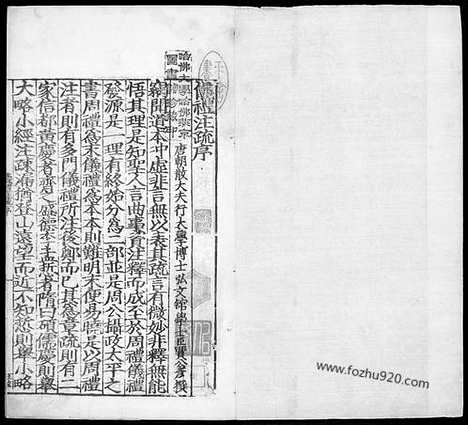 儀禮注疏序
唐朝散大夫行大學博士弘文館學士臣賈公彥撰
竊聞道本沖虛非言無以表其疏言有微妙非釋無能
悟其理是知聖人言曲事資注釋而成至於周禮儀禮
發源是一理有終始分爲二部並是周公攝政大平之
書周禮爲末儀禮爲本本則難明末便易曉是以周禮
注者則有多門儀禮所注後鄭而已其爲章疏則有二
家信都黃慶者齊之盛德李孟悊者隋曰碩儒慶則舉
大略小經注疎漏猶登山遠望而近不知悊則舉小略
www.fozhu920.com